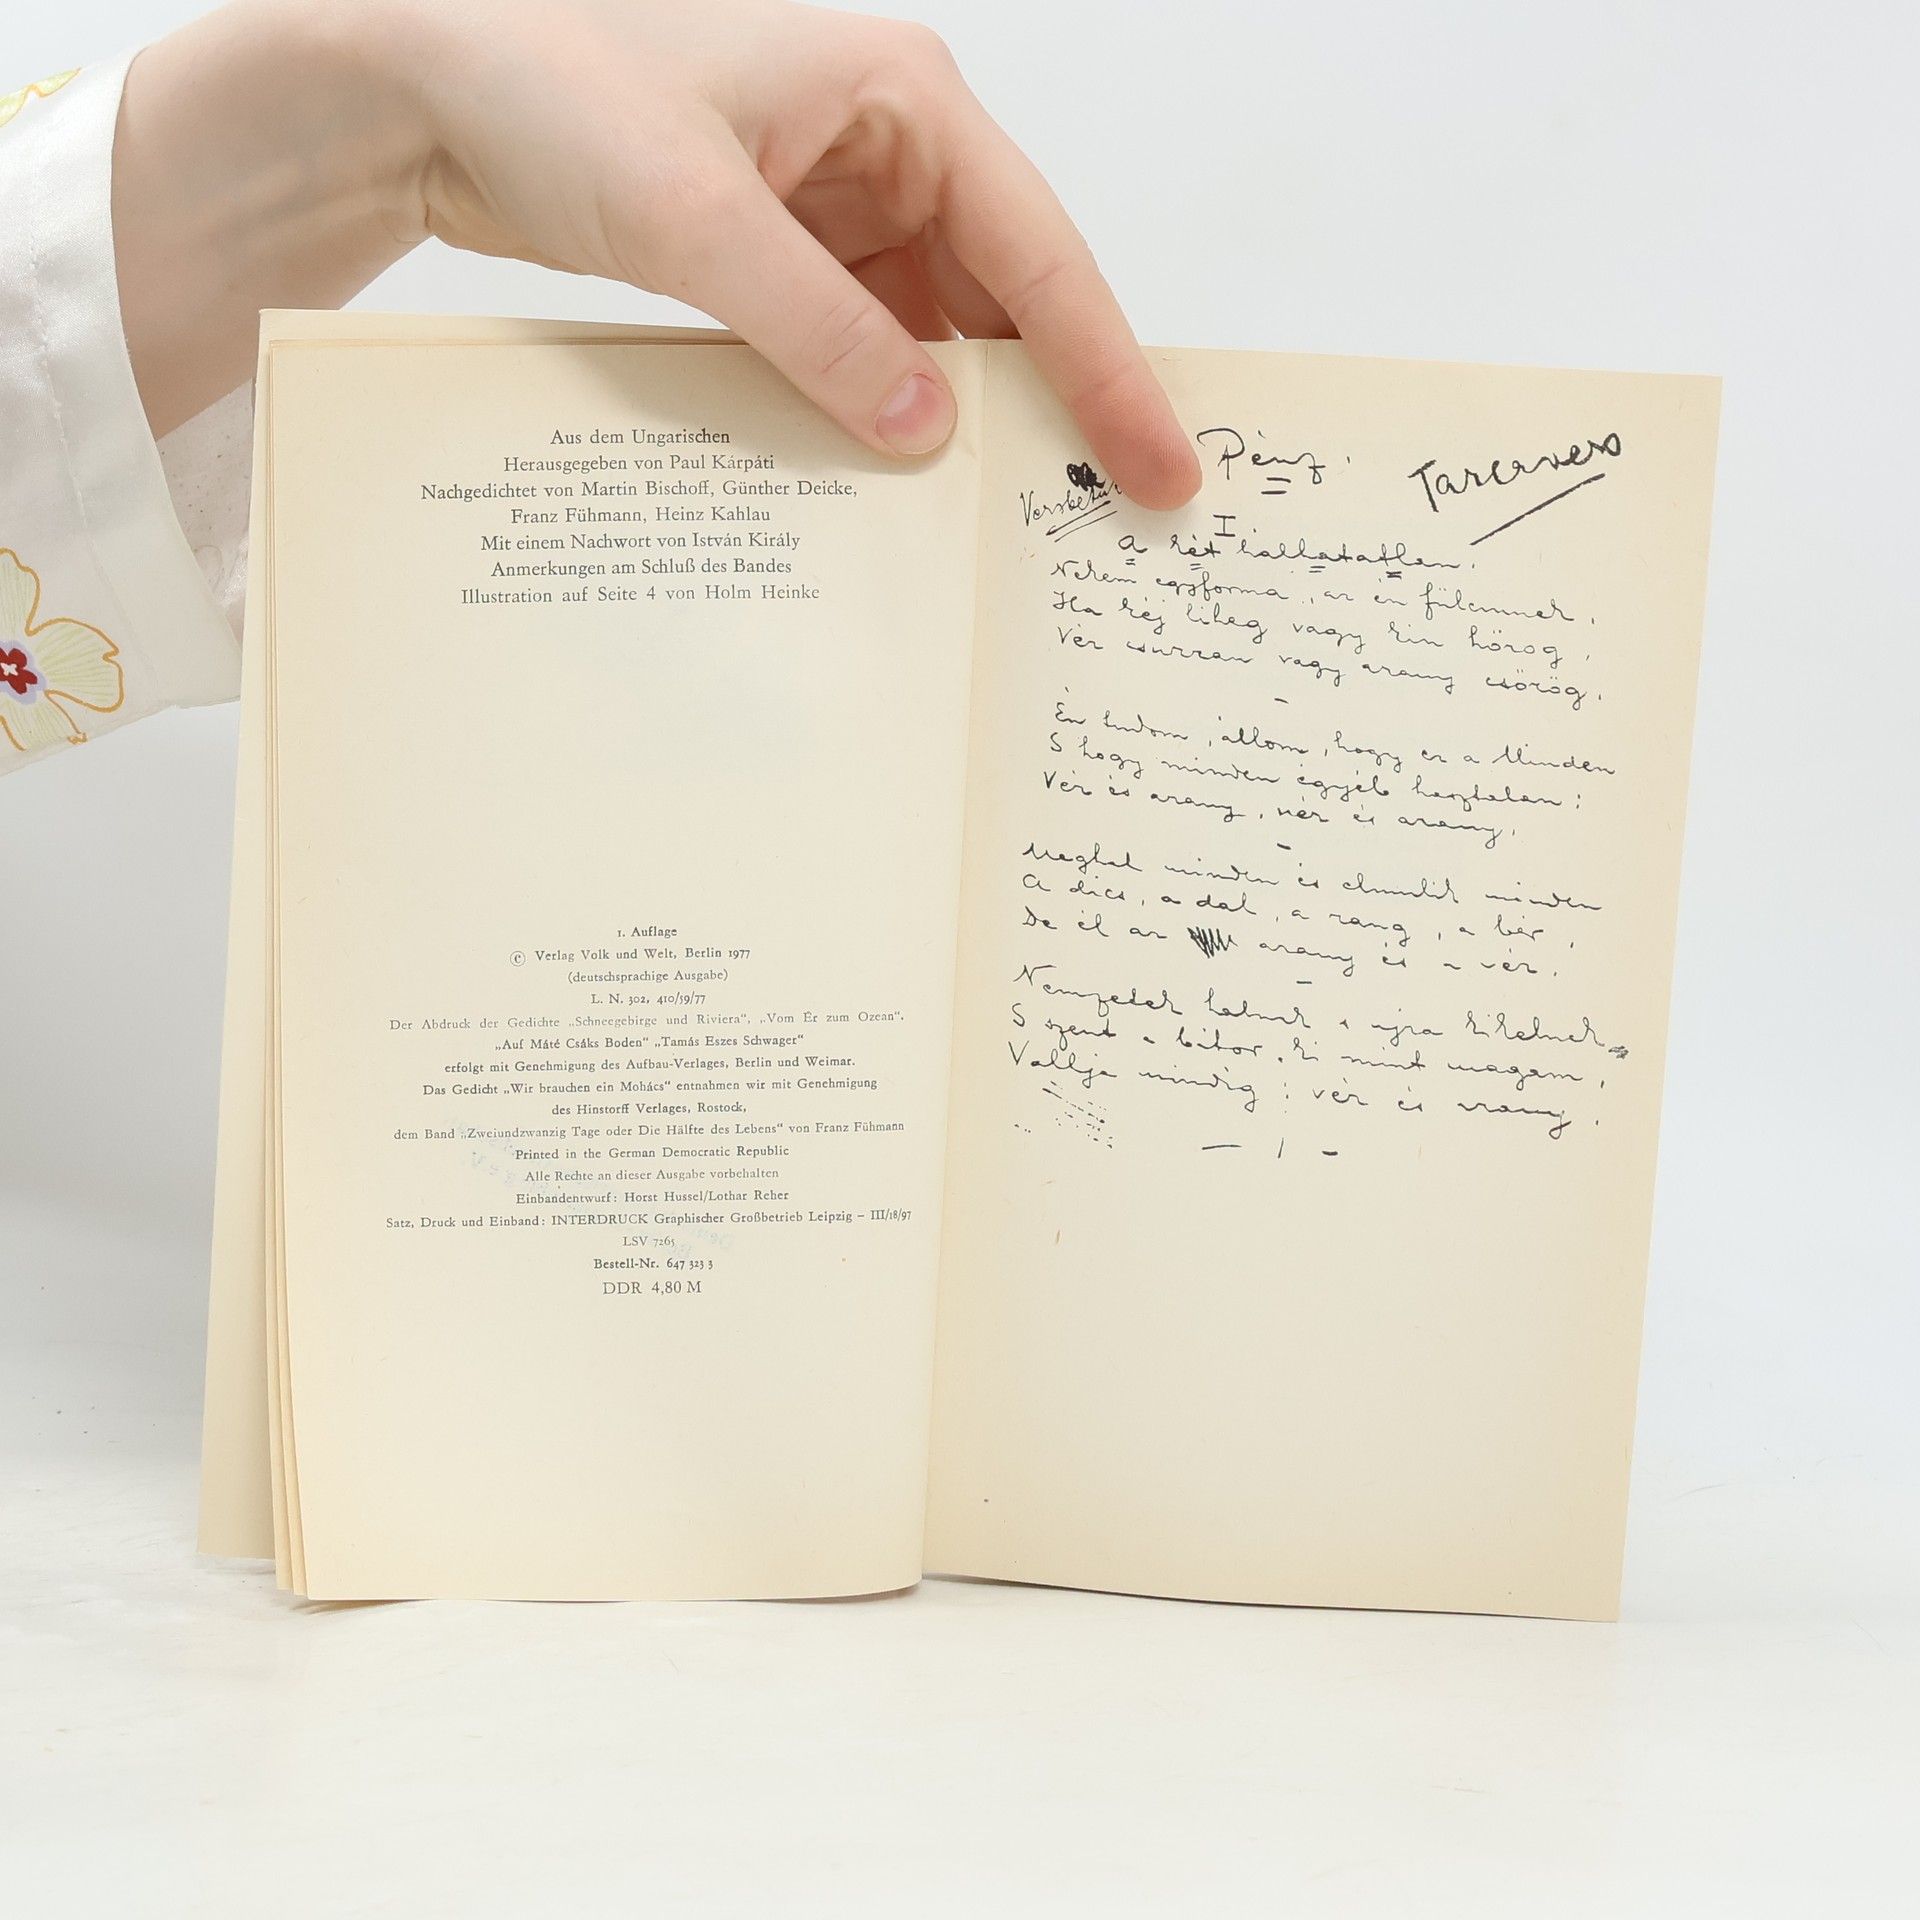 Aus dem Ungarischen
Herausgegeben von Paul Kárpáti
Nachgedichtet von Martin Bischoff, Günther Deicke,
Franz Fühmann, Heinz Kahlau
Mit einem Nachwort von István Király
Anmerkungen am Schluß des Bandes
Illustration auf Seite 4 von Holm Heinke
1. Auflage
© Verlag Volk und Welt, Berlin 1977
(deutschsprachige Ausgabe)
L. N. 302, 410/59/77
Der Abdruck der Gedichte „Schneegebirge und Riviera“, „Vom Ér zum Ozean“,
„Auf Máté Csáks Boden“ „Tamás Eszes Schwager“
erfolgt mit Genehmigung des Aufbau-Verlages, Berlin und Weimar.
Das Gedicht „Wir brauchen ein Mohács“ entnahmen wir mit Genehmigung
des Hinstorff Verlages, Rostock,
dem Band „Zweiundzwanzig Tage oder Die Hälfte des Lebens“ von Franz Fühmann
Printed in the German Democratic Republic
Alle Rechte an dieser Ausgabe vorbehalten
Einbandentwurf: Horst Hussel/Lothar Reher
Satz, Druck und Einband: INTERDRUCK Graphischer Großbetrieb Leipzig – III/18/97
LSV 7265
Bestell-Nr. 647 323 3
DDR 4,80 M
Pénz.
Tárcavers
I
A két halhatatlan.
Nekem egyforma, az én fülemnek,
Ha kéj liheg vagy kín hörög,
Vér csurran vagy arany csörög.
Én tudom, állom, hogy ez a Minden
S hogy minden egyéb hasztalan:
Vér és arany, vér és arany.
Meghal minden és elmulik minden
A dics, a dal, a rang, a bér,
De él az arany és a vér.
Nemzetek halnak s ujra kikelnek
S szent a bátor, ki mint magam,
Vallja mindig: vér és arany.